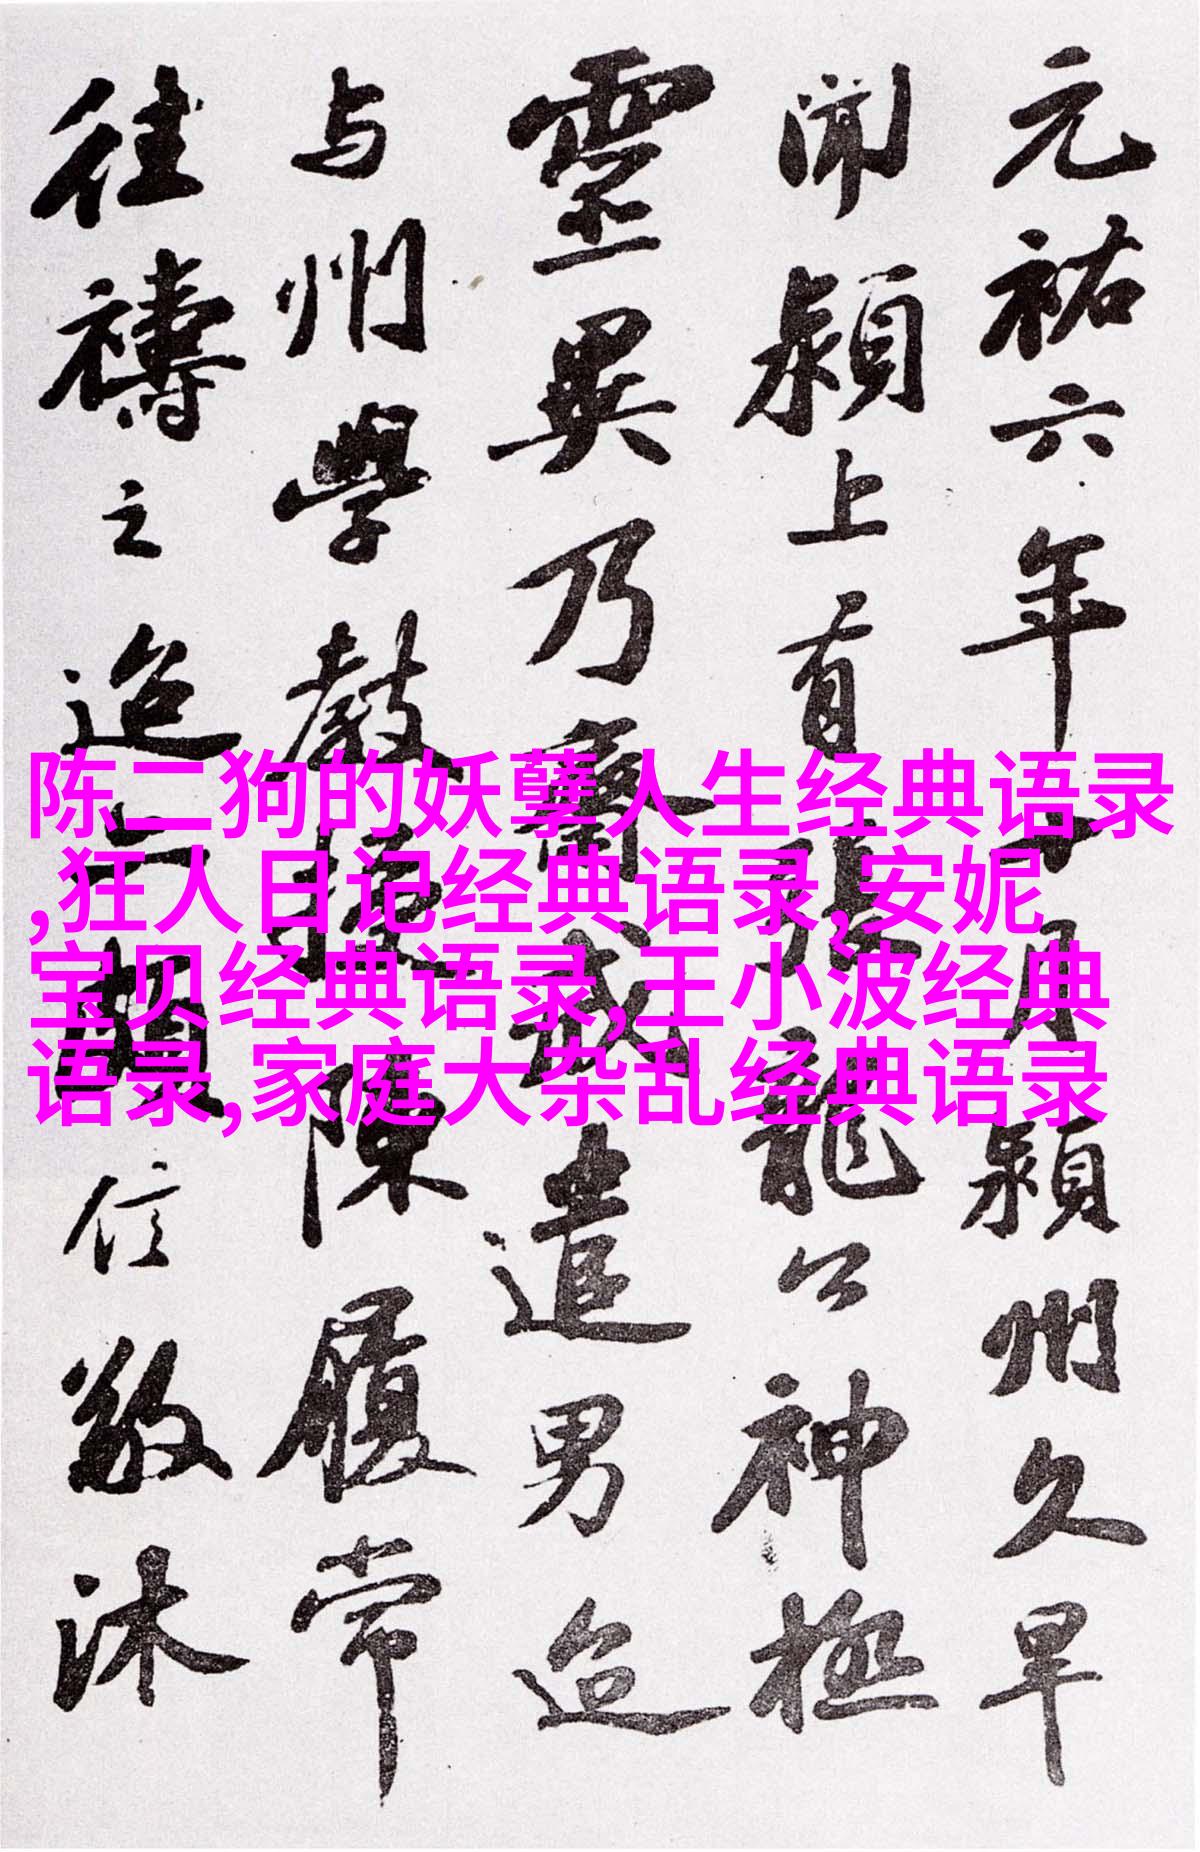 元祐六年十月潁州久旱
聞潁上有張龍公神極
靈異乃齋戒遣男迨
与州學教授陳履常
往禱之迨亦頗信敬沐
陈二狗的妖孽人生经典语录
,狂人日记经典语录,安妮
宝贝经典语录,王小波经典
语录,家庭大杂乱经典语录